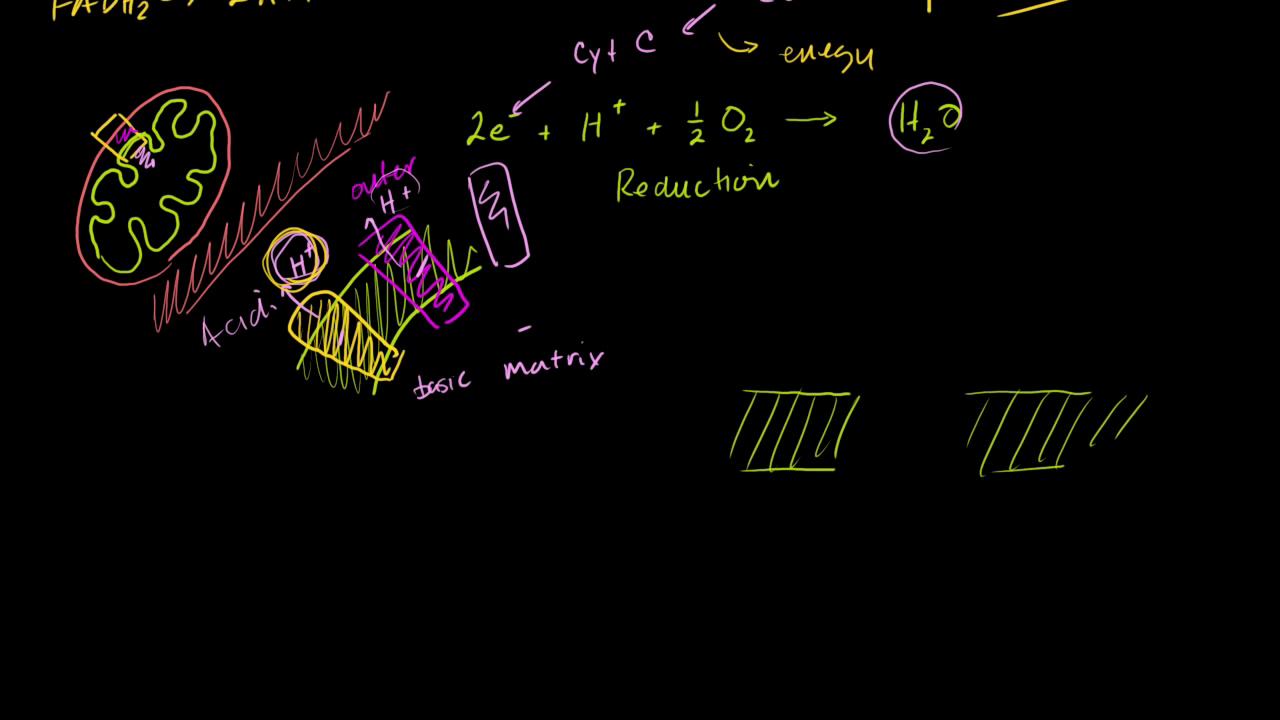 FADH₂
Cyt C
energy
2e⁻ + H⁺ + ½ O₂ → H₂O
Reduction
outer
H⁺
H⁺
Acidi
basic matrix